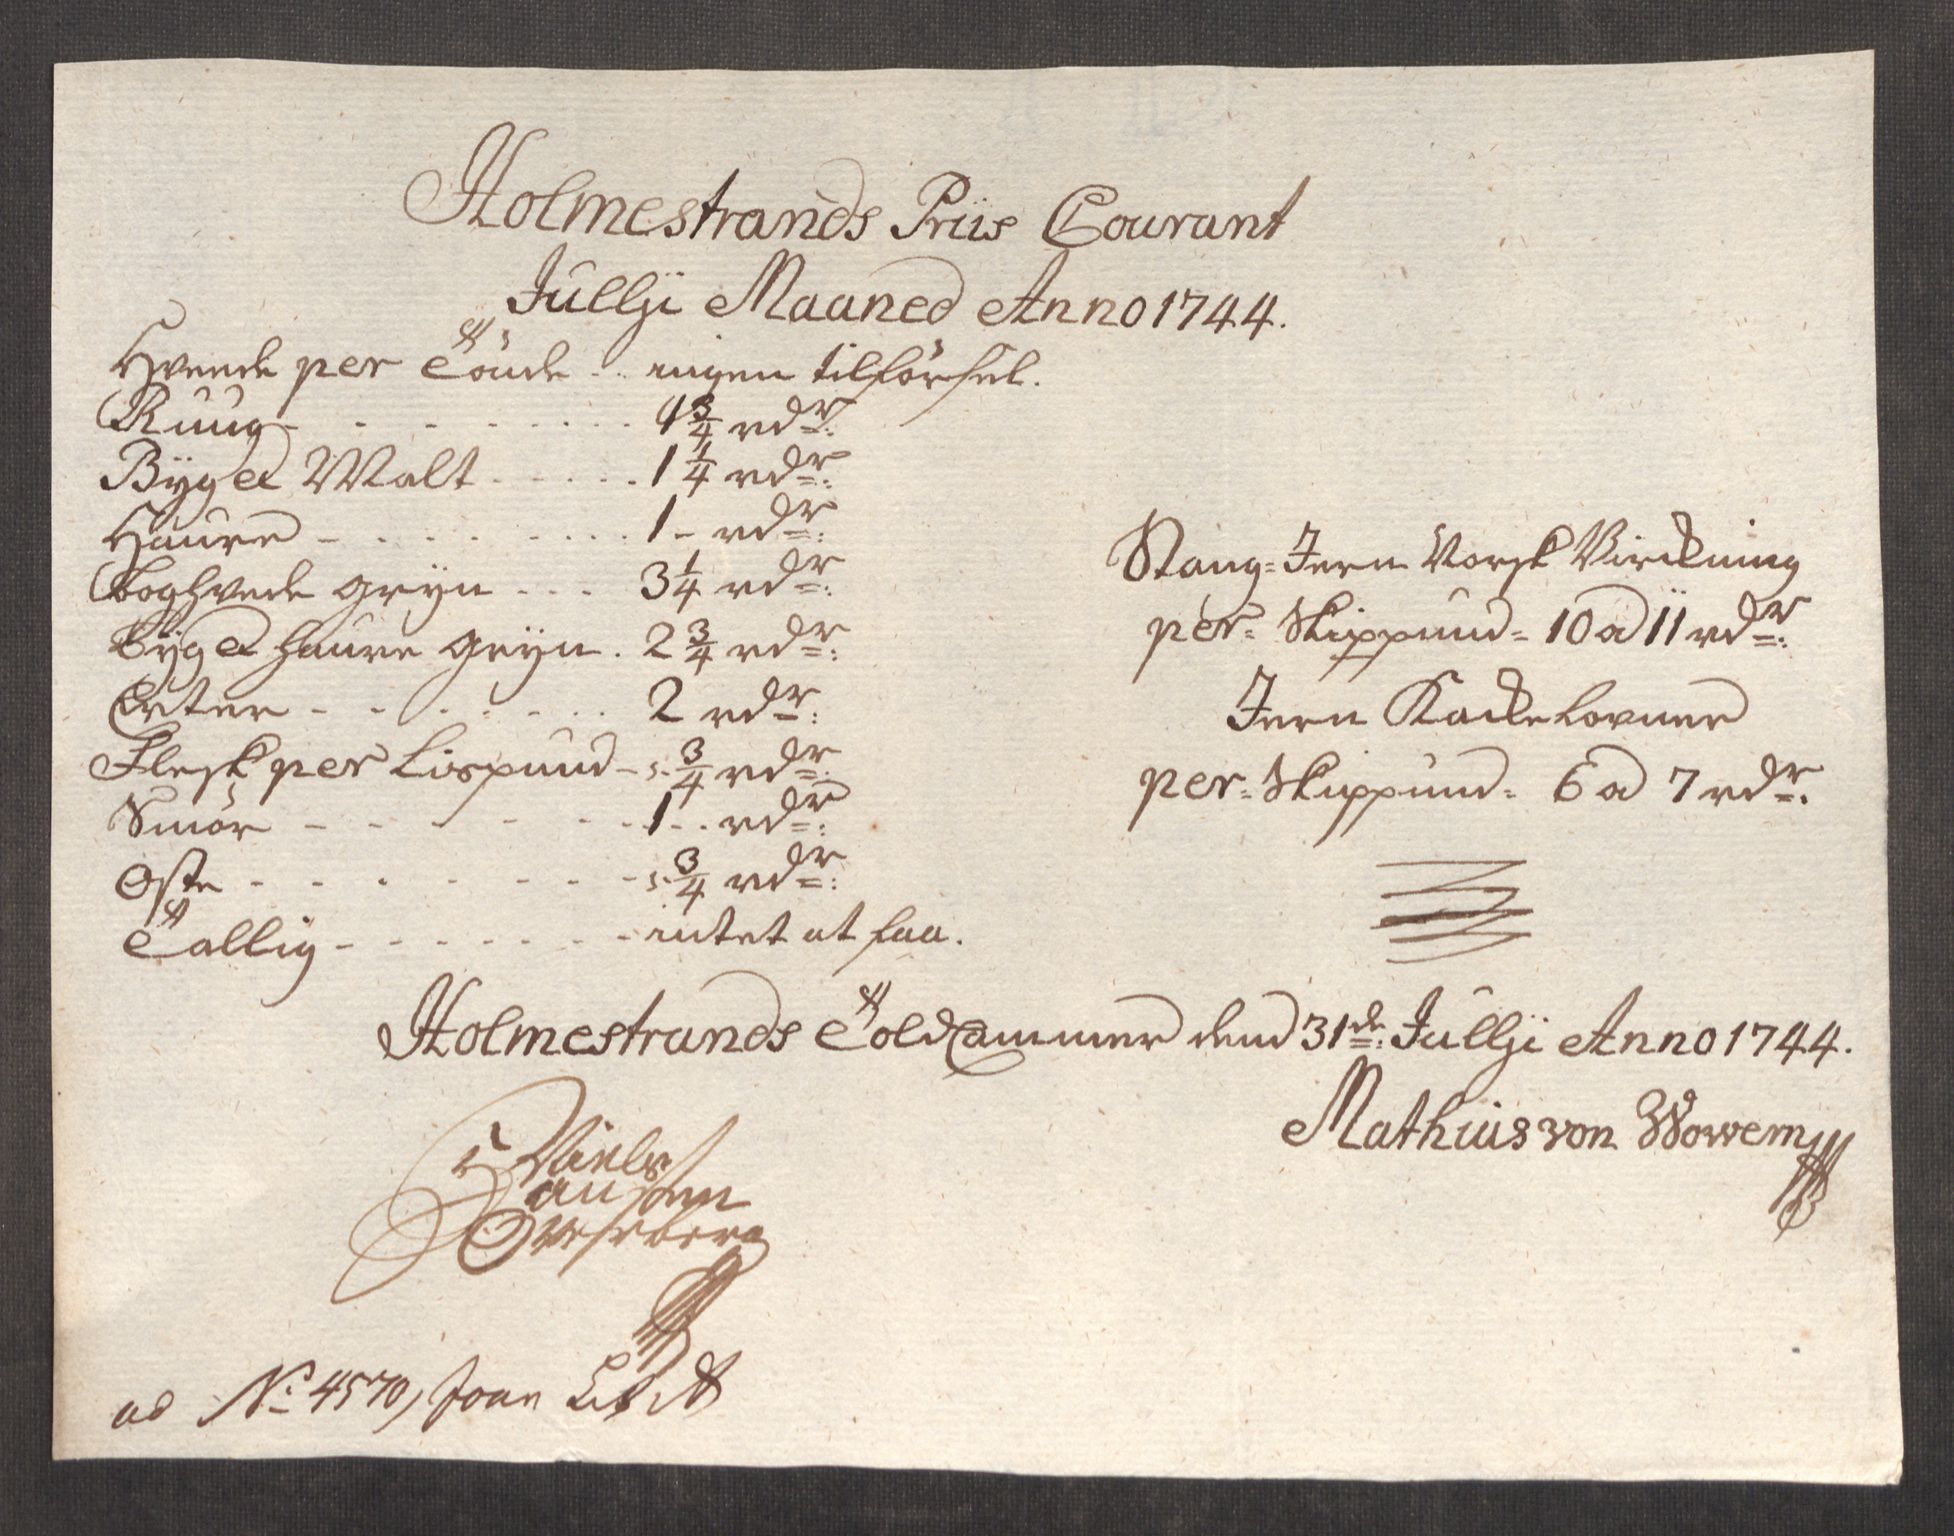 Holmestrands Priis Courant
Jullÿ Maaned Anno 1744.
Hveede per Tönde .. ingen tilförsel.
Ruug - - - - - - - 1 3/4 rdr:
Bÿg et Malt - - - - - 1 1/4 rdr:
Haure - - - - - - - 1 - rdr:
Boghvede Grÿn - - - 3 1/4 rdr:
Bÿg et Haure Grÿn . 2 3/4 rdr:
Erter - - - - - - - 2 rdr:
Flesk per Lispund - :- 3/4 rdr:
Smör - - - - - - - 1 - - rdr:
Oste - - - - - - - :- 3/4 rdr:
Tallig - - - - - - - intet at faa.
Stang=Jern Norsk Virckning
per= Skippund= 10 a 11 rdr:
Jern Kackelovner
per= Skippund= 6 a 7 rdr.
Holmestrands Told Cammer dend 31de: Jullÿ Anno 1744.
Mathias von Wowern
Niels
Hansen
Sverberg
ad No 4570,